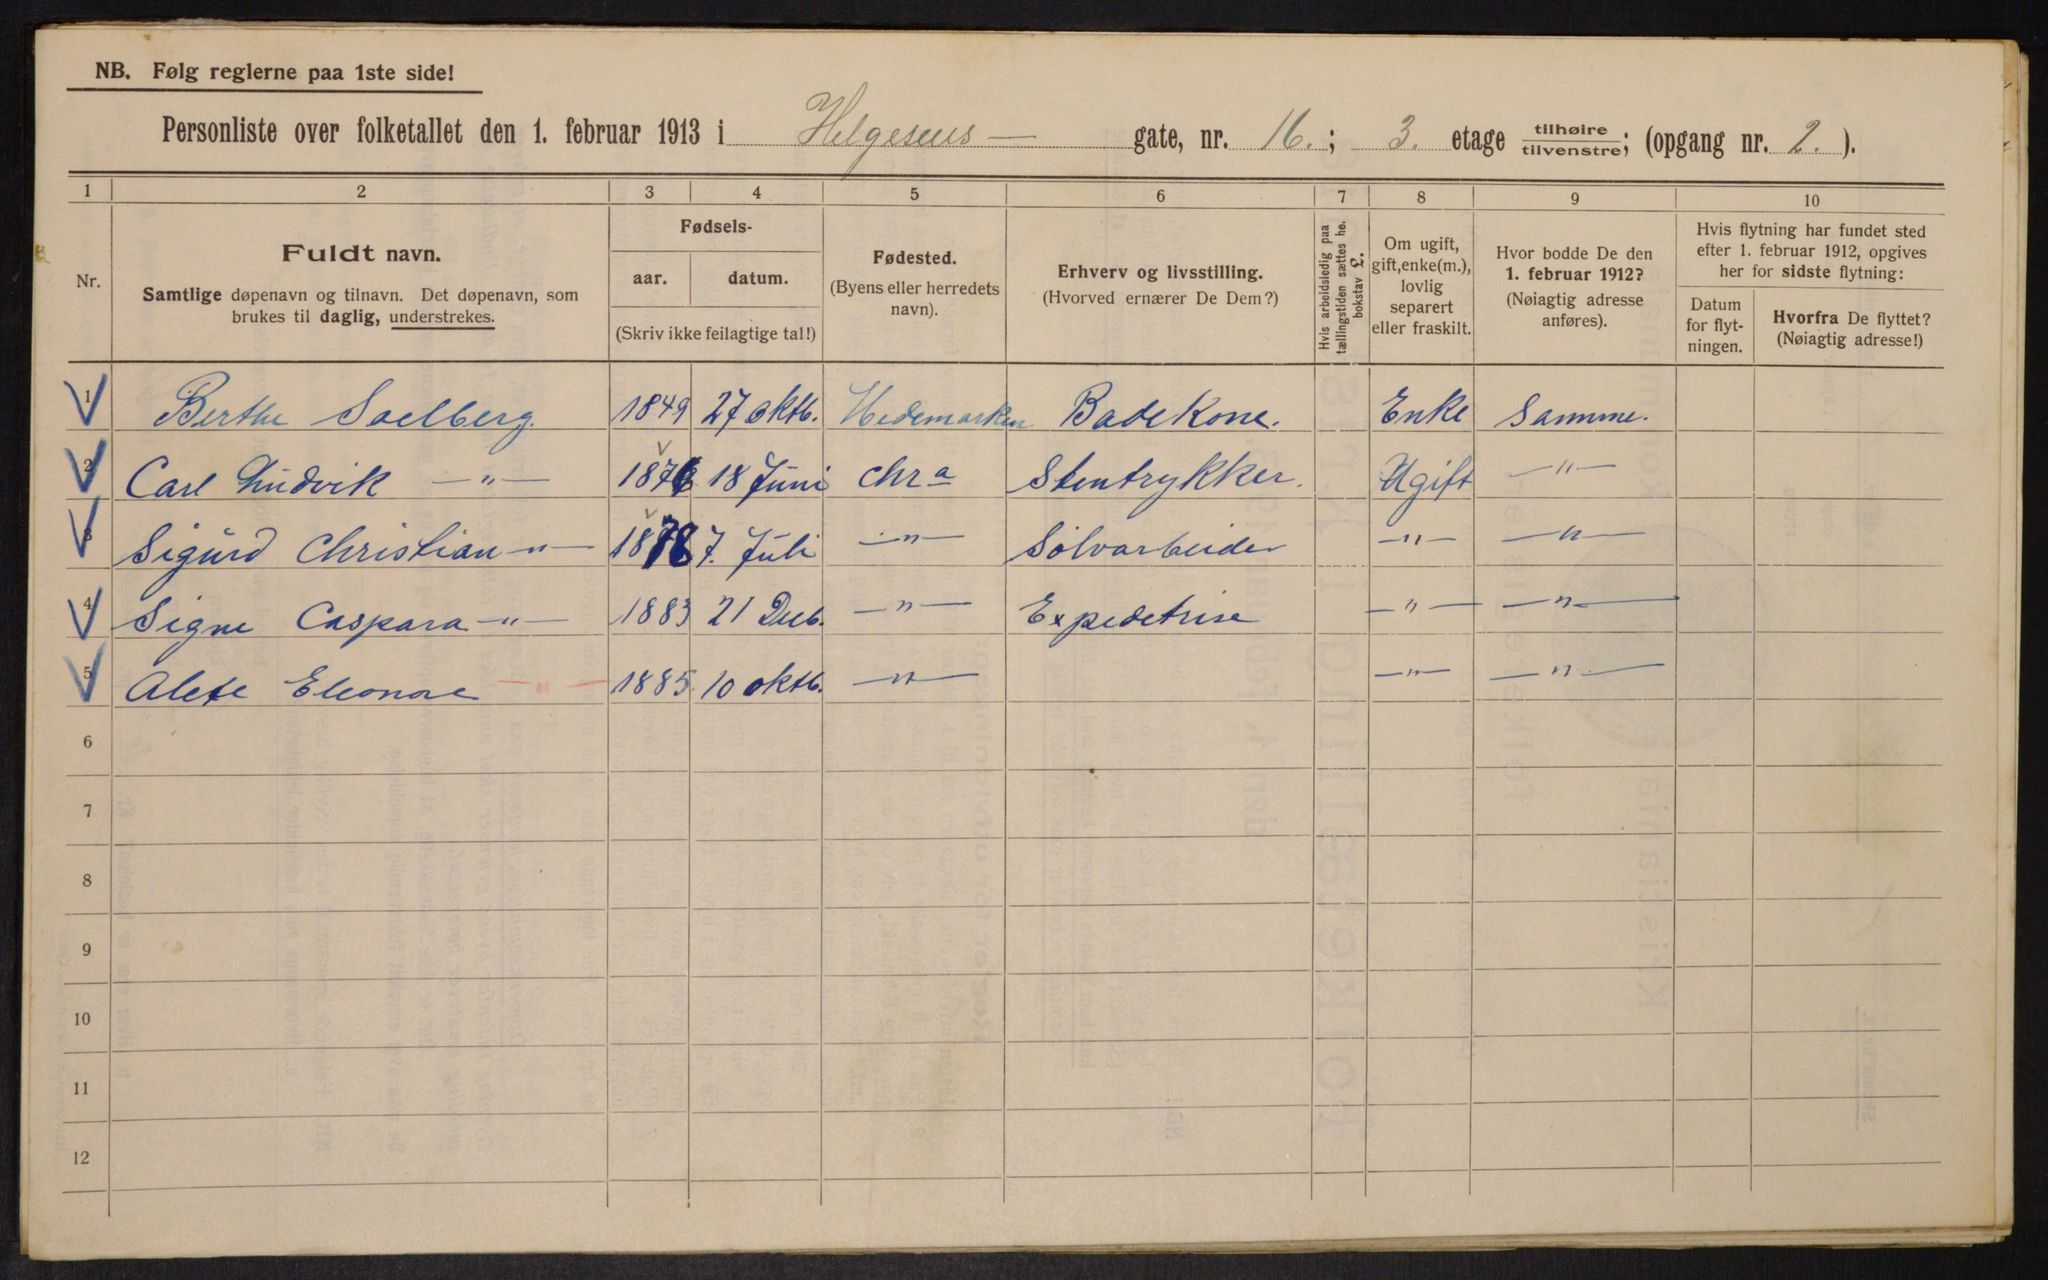 NB. Følg reglerne paa 1ste side!
Personliste over folketallet den 1. februar 1913 i Helgesens — gate, nr. 16.; 3. etage tilhøire/tilvenstre; (opgang nr. 2.).
1 2 3 4 5 6 7 8 9 10
Nr.
Fuldt navn.
Samtlige døpenavn og tilnavn. Det døpenavn, som
brukes til daglig, understrekes.
Fødsels-
aar. datum.
(Skriv ikke feilagtige tal!)
Fødested.
(Byens eller herredets
navn).
Erhverv og livsstilling.
(Hvorved ernærer De Dem?)
Hvis arbeidsledig paa
tællingstiden sættes he.
bokstav L.
Om ugift,
gift, enke(m.),
lovlig
separert
eller fraskilt.
Hvor bodde De den
1. februar 1912?
(Nøiagtig adresse
anføres).
Hvis flytning har fundet sted
efter 1. februar 1912, opgives
her for sidste flytning:
Datum
for flyt-
ningen.
Hvorfra De flyttet?
(Nøiagtig adresse!)
1 Berthe Soelberg. 1849 27 oktb. Hedemarken Badekone. Enke Samme.
2 Carl Ludvik —"— 1876 18 Juni Chra Stentrykker. Ugift —"—
3 Sigurd Christian —"— 1878 7. Juli —"— Sølvarbeider —"— —"—
4 Signe Caspara —"— 1883 21 Decb. —"— Expedetrise —"— —"—
5 Alete Eleonore —"— 1885 10 oktb. —"— —"— —"—
6
7
8
9
10
11
12